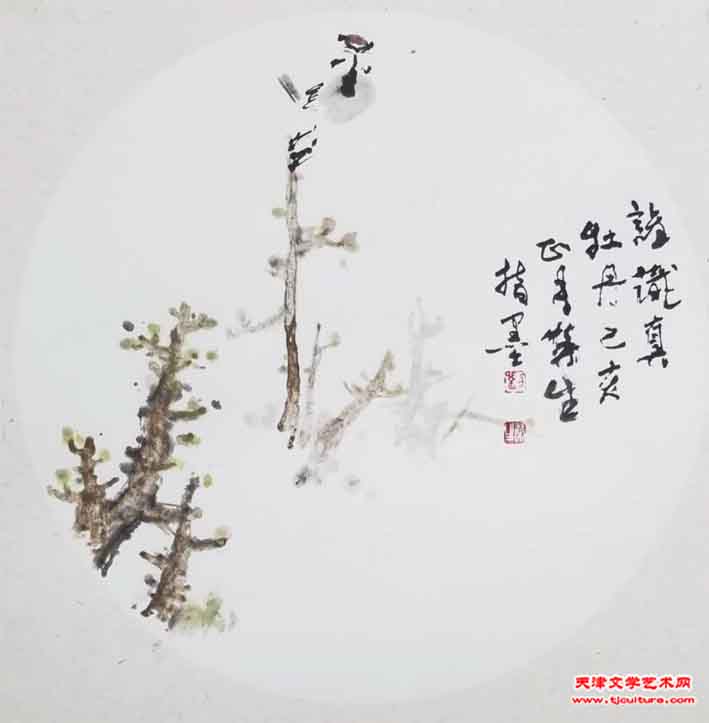 誰識真
牡丹己亥
正月生
指墨
天津文学艺术网
www.tjculture.com